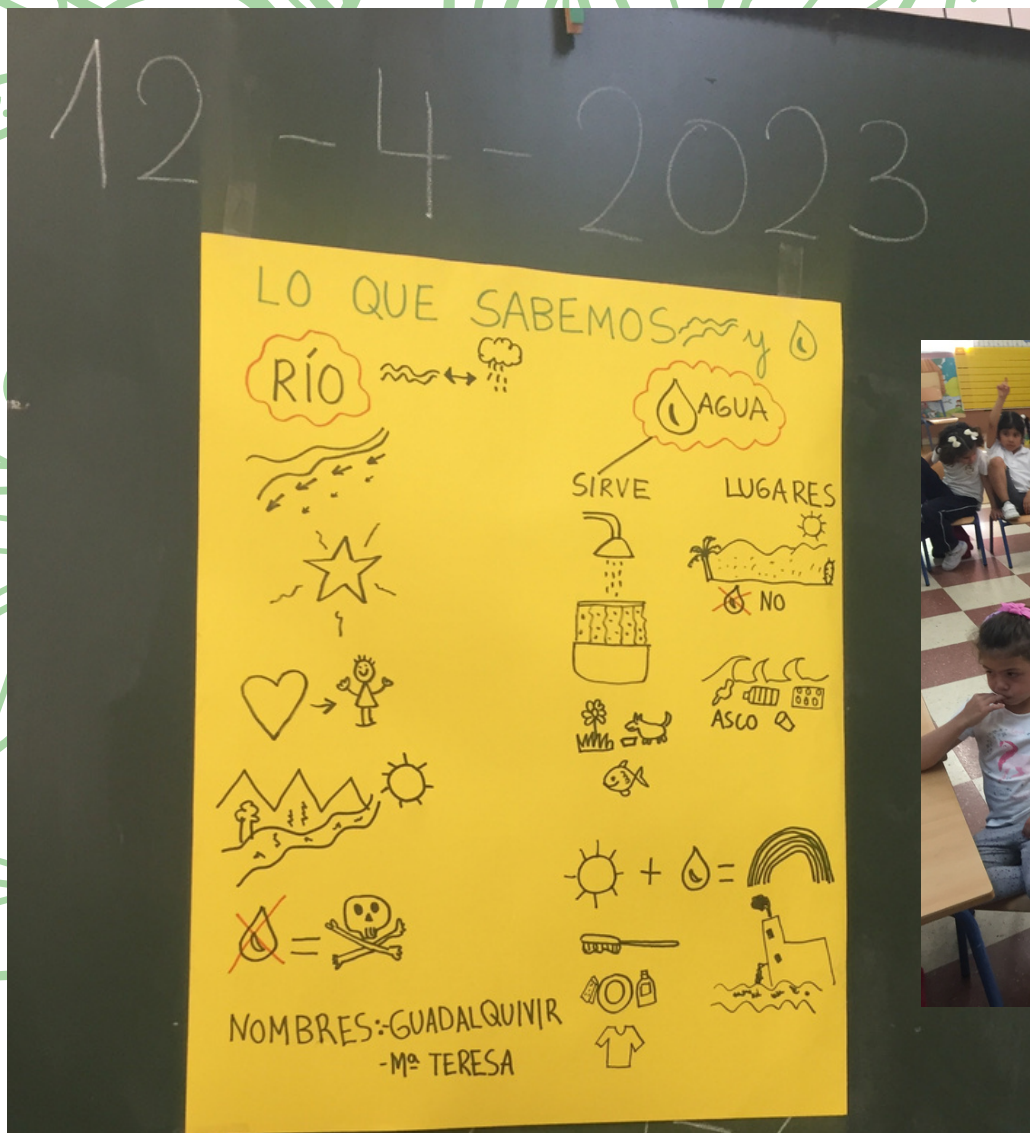 12-4-2023
LO QUE SABEMOS y
RÍO
AGUA
SIRVE
LUGARES
NO
ASCO
+ =
=
NOMBRES:-GUADALQUIVIR
-Mª TERESA